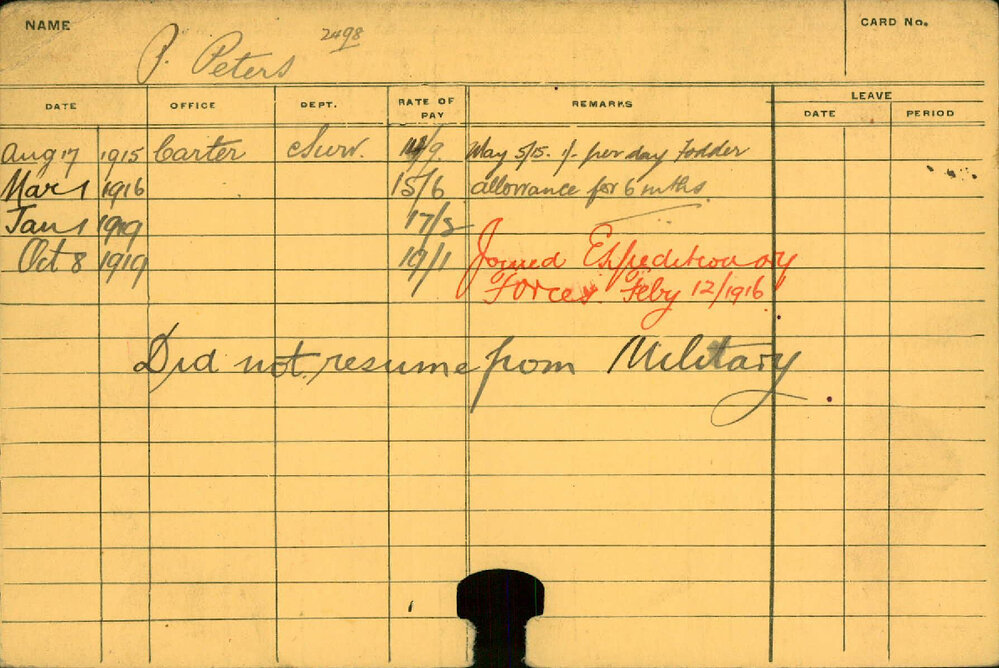 NAME
CARD No.
2498
P. Peters
DATE OFFICE DEPT. RATE OF PAY REMARKS LEAVE
DATE PERIOD
Aug 17 1915 Carter Surv. 14/9. May 5/15. 1/- per day fodder
Mar 1 1916 15/6 allowance for 6 mths
Jan 1 1919 17/
Oct 8 1919 19/1 Joined Expeditionary
Forces. Feby 12/1916
Did not resume from Military